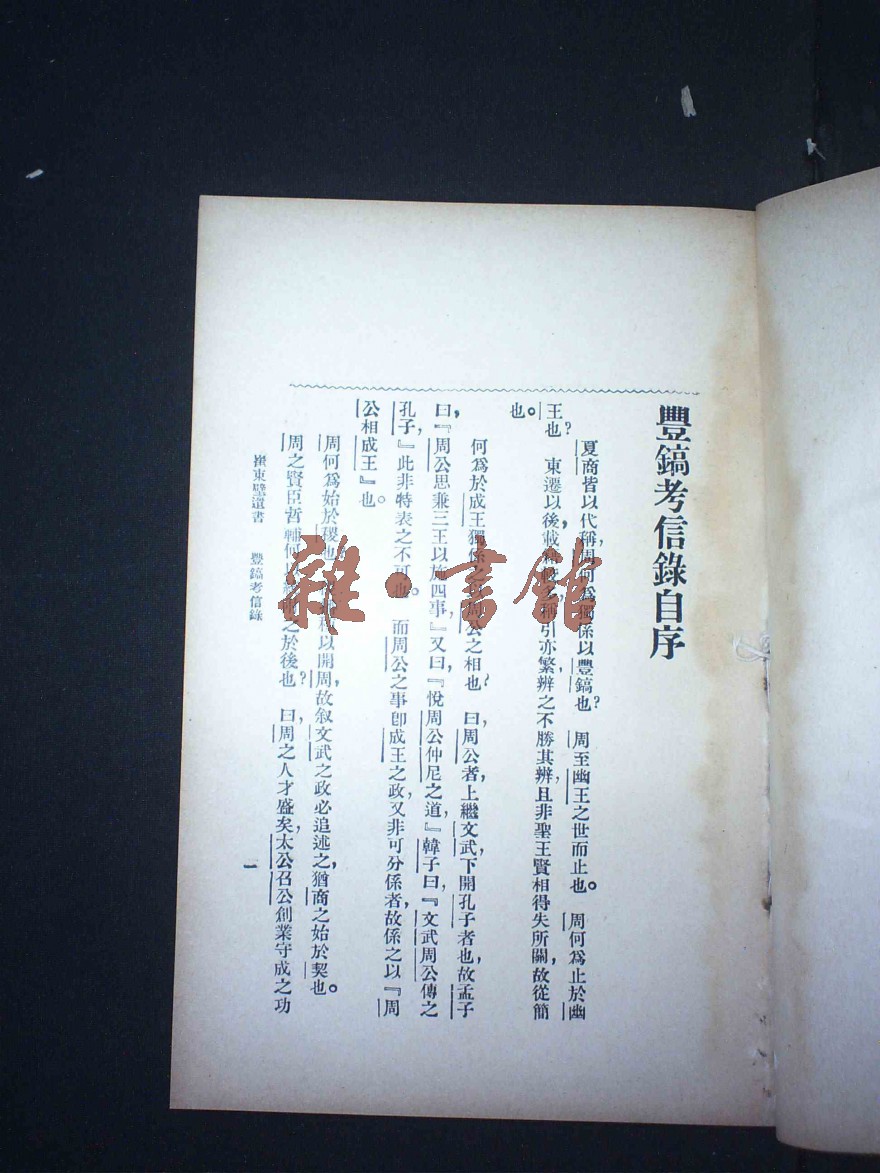 豐鎬考信錄自序
夏商皆以代稱,周何爲獨係以豐鎬也?　周至幽王之世而止也。　周何爲止於幽
王也?　東遷以後,載籍　稱引亦繁,辨之不勝其辨,且非聖王賢相得失所關,故從簡
也。
何爲於成王獨係之以周公之相也?　曰,周公者,上繼文武,下開孔子者也,故孟子
曰,『周公思兼三王以施四事,』又曰,『悅周公仲尼之道,』韓子曰,『文武周公傳之
孔子,』此非特表之不可也。　而周公之事卽成王之政,又非可分係者,故係之以『周
公相成王』也。
周何爲始於稷也?　以開周,故叙文武之政必追述之,猶商之始於契也。
周之賢臣哲輔何以　之於後也?　曰,周之人才盛矣,太公召公創業守成之功
崔東壁遺書　豐鎬考信錄　一
雜·書館